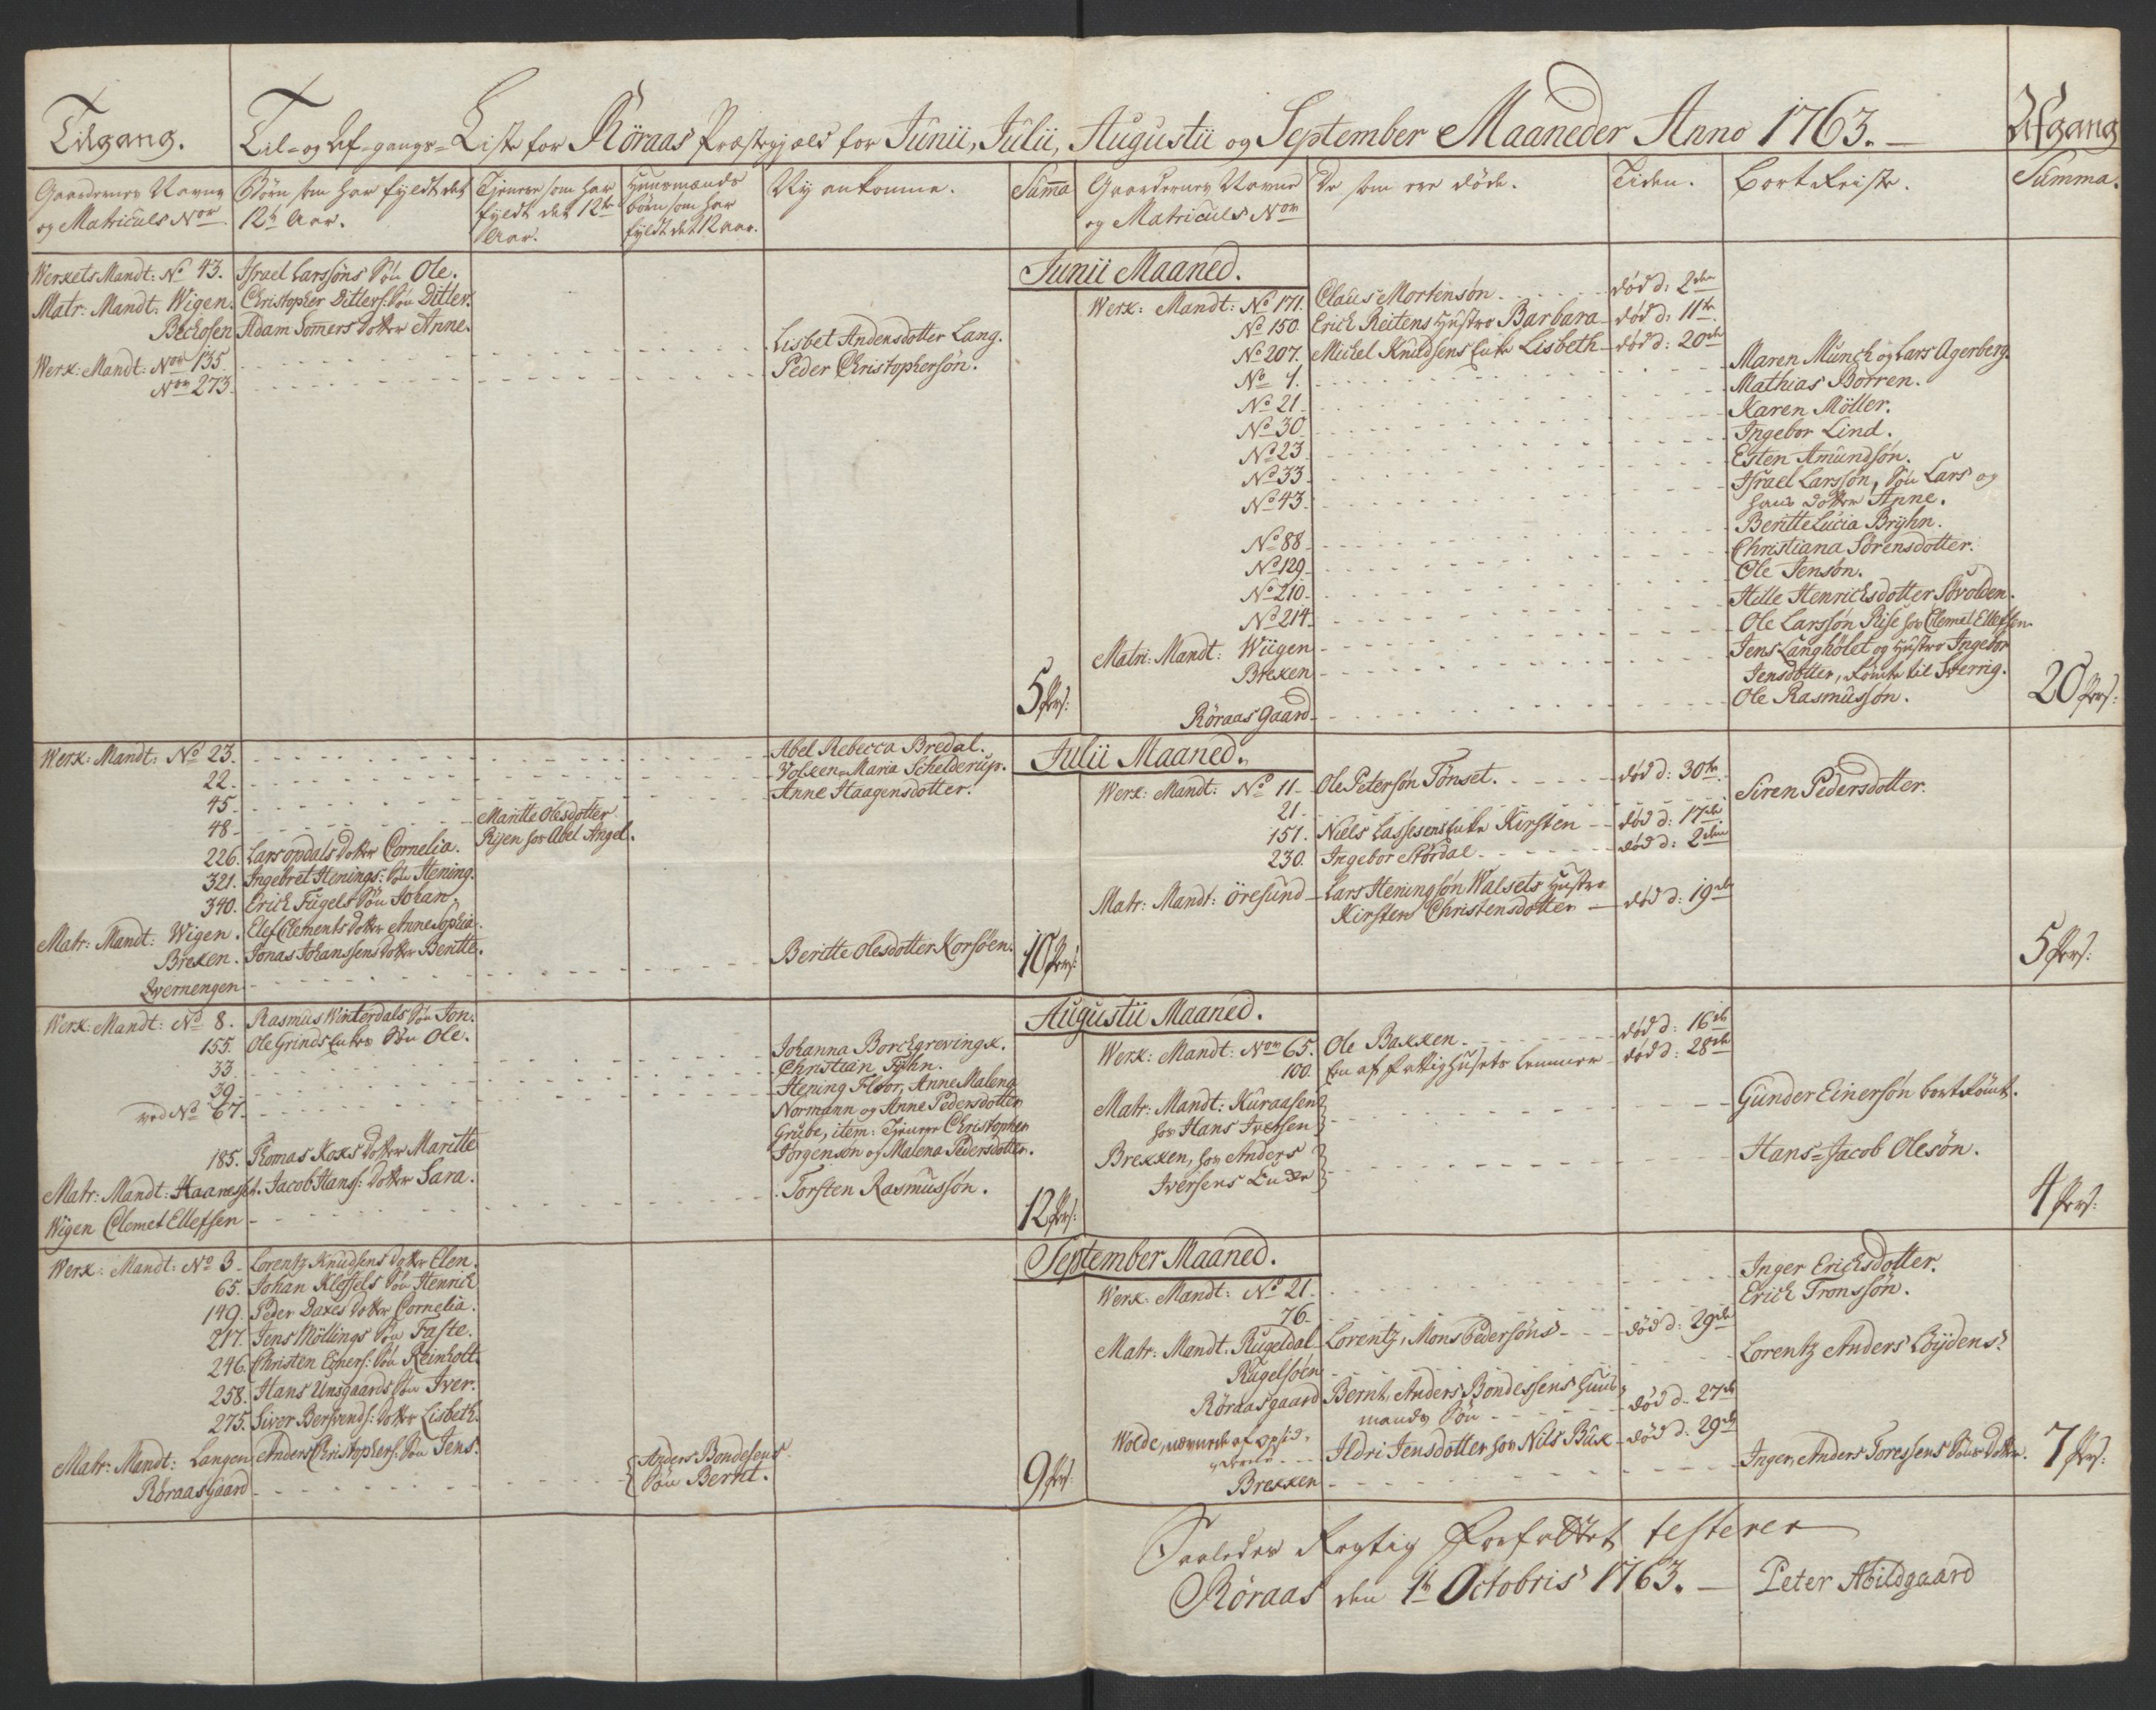 Tilgang.
Til- og Af-gangs-Liste for Röraas Præstegjæld for Junii, Julii, Augustii og September Maaneder Anno 1763.
Afgang
Gaardernes Navne og Matriculs Nor
Börn som har fyldt det 12te Aar.
Tjenere som har fyldt det 12te Aar.
Huusmænds börn som har fyldt det 12 aar.
Ny ankomne.
Summa
Gaardernes Navne og Matriculs Nor
De som ere döde.
Tiden.
Bortreiste.
Summa.
Junii Maaned.
Werkets Mandt: No 43. Israel Larssöns Sön Ole.
Matr: Mandt: Wigen. Christopher Ditlevs: Sön Ditlev.
Beckosen Adam Somers Dotter Anne.
Werk: Mandt: Nor 135. Lisbet Andersdotter Lang.
Nor 273. Peder Christophersön.
5 Pers:
Werk: Mandt: No 171. Claus Mortensön. död d: 2den
No 150. Erich Reitens Hustro Barbara död d: 11te
No 207. Michel Knudsens Enke Lisbeth död d: 20de
No 1. Maren Munch og Lars Agerberg.
No 21. Mathias Borren.
No 30. Karen Möller.
No 23. Ingebor Lind.
No 33. Esten Amundsön.
No 43. Israel Larssön, Sön Lars og
hans Dotter Anne.
No 88. Beritte Lucia Bryhn.
No 129. Christiana Sörensdotter.
No 210. Ole Jensön.
No 214. Helle Henrichsdotter Sövolden.
Matri: Mandt: Wiigen Ole Larssön Rise hos Clemet Ellefsen
Breken Jens Langhölet og Hustro Ingebor
Jensdotter, römte til Sverrig.
Röraas Gaard Ole Rasmussön.
20 Pers:
Julii Maaned.
Werk: Mandt: No 23. Abel Rebecca Bredal.
22. Volken Maria Schelderup.
45. Anne Haagensdotter.
48. Maritte Olesdotter
Rijen hos Abel Angel.
226. Lars opdals Dotter Cornelia.
321. Ingebret Henings: Sön Hening.
340. Erich Fugels Sön Johan.
Matr: Mandt: Wigen. Elef Clements Dotter Anne Sophia.
Breken. Jonas Johanssens Dotter Beritte.
Qvernengen Beritte Olesdotter Korsöen.
10 Pers:
Werk: Mandt: No 11 Ole Petersön Tönset. död d: 30te
21. Siren Pedersdotter.
151. Niels Lassesens Enke Kirsten död d: 17de
230. Ingebor Stördal död d: 2den
Matr: Mandt: Öresund Lars Heningsön Walsets Hustro
Kirsten Christensdotter död d: 19de
5 Pers:
Augustii Maaned.
Werk: Mandt: No 8. Rasmus Winterdals Sön Jon.
155. Ole Grinds Enkes Sön Ole.
33. Johanna Borchgrevingk.
39. Christian Fyhn.
ved No 67. Hening Floor, Anne Malena
Normann og Anne Pedersdotter
Grube, item: Tjenere Christopher
Jörgensön og Malena Pedersdotter.
185. Thomas Koks Dotter Maritte
Matr: Mandt: Haaneset. Jacob Hans: Dotter Sara.
Wigen Clemet Ellefsen Torsten Rasmussön.
12 Pers:
Werk: Mandt: Nor 65. Ole Bakken. död d: 16de
100. En af Fattighusets Lemmer död d: 28de
Matr: Mandt: Kuraasen
hos Hans Iversen Gunder Einersön bortrömt.
Brekken, hos Anders
Iversens Encke Hans-Jacob Olesön.
4 Pers:
September Maaned.
Werk: Mandt: No 3. Lorentz Knudsens Dotter Elen.
65. Johan Klefsels Sön Henrich
149. Peder Daxes Dotter Cornelia.
217. Jens Möllings Sön Faste.
246. Christen Ejners: Sön Reinholt.
258. Hans Unsgaards Sön Iver.
275. Siver Bersvends: Dotter Lisbeth.
Matr: Mandt: Langen Anders Christophers: Sön Jens.
Röraasgaard Anders Bondesens
Sön Bernt.
9 Pers:
Werk: Mandt: No 21. Inger Erichsdotter.
76. Erich Tronssön.
Matr: Mandt: Rugeldal Lorentz, Mons Pedersöns död d: 29de
Rugelsöen Lorentz Anders Löydens.
Röraasgaard Bernt, Anders Bondessens Huus
mands Sön död d. 27de
Wolde, Ildri Jensdotter hos Nils Buk död d. 29de
Brekken Inger, Anders Toressens Söns Dotter.
7 Pers:
Saaledes Rigtig Forfattet testerer
Röraas den 1te Octobris 1763. Peter Abildgaard